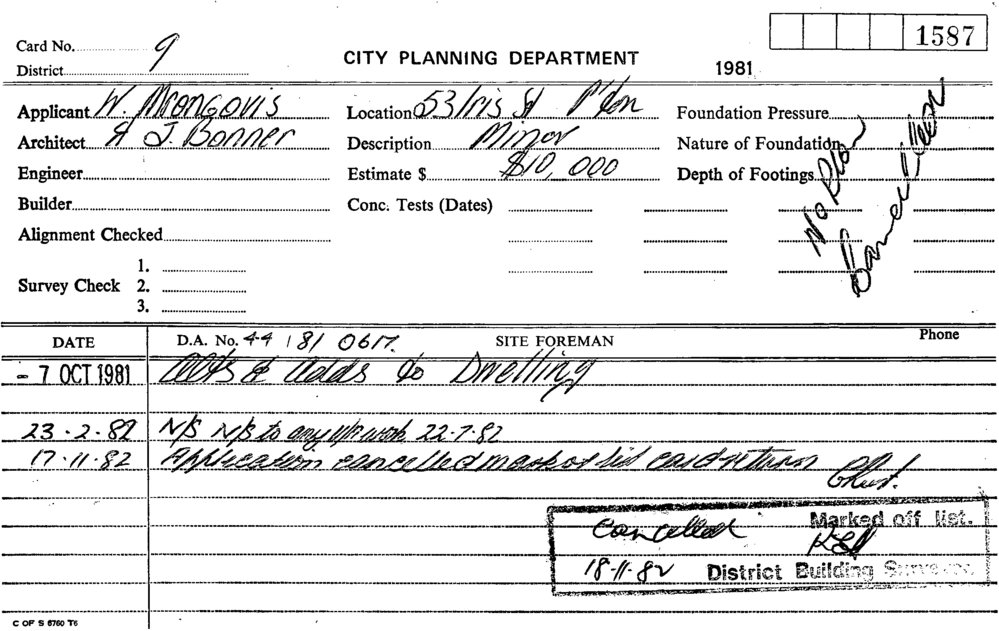 1587
Card No. 9
CITY PLANNING DEPARTMENT
District
1981
Applicant W. Mrongovis
Location 53 Iris St P'ton
Foundation Pressure
Architect A J. Bonner
Description Minor
Nature of Foundation
Engineer
Estimate $ $10,000
Depth of Footings
No Plan
Cancelled
Builder
Conc. Tests (Dates)
Alignment Checked
1.
Survey Check 2.
3.
DATE
D.A. No. 44 81 0617.
SITE FOREMAN
Phone
- 7 OCT 1981 Alts & Adds to Dwelling
23-2-82 N/S N/S to any work 22-7-82
17-11-82 Application cancelled mark of list card return
Cancelled
Marked off list.
18-11-82 District Building Surveyor.
C OF S 6760 T6